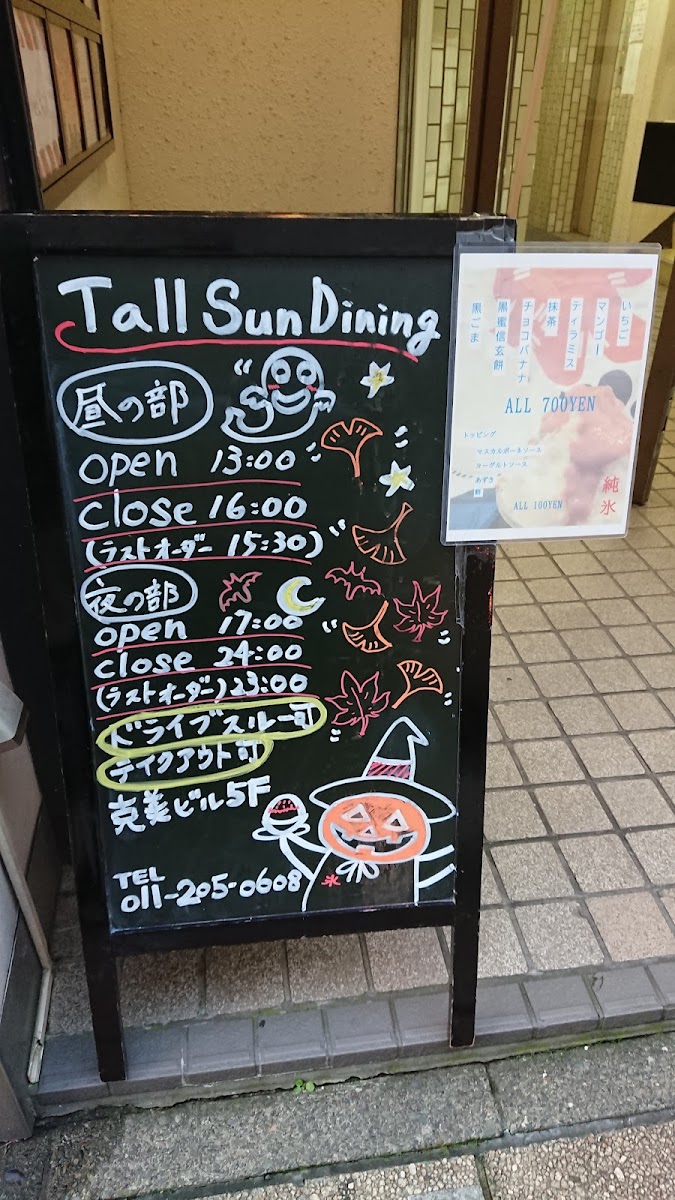 Tall Sun Dining
昼の部
open 13:00
close 16:00
(ラストオーダー 15:30)
夜の部
open 17:00
close 24:00
(ラストオーダー)23:00
ドライブスルー可
テイクアウト可
克美ビル5F
TEL
011-205-0608
氷
いちご
マンゴー
ティラミス
抹茶
チョコバナナ
黒蜜信玄餅
黒ごま
ALL 700YEN
トッピング
マスカルポーネソース
ヨーグルトソース
あずき
餅
ALL 100YEN
純氷